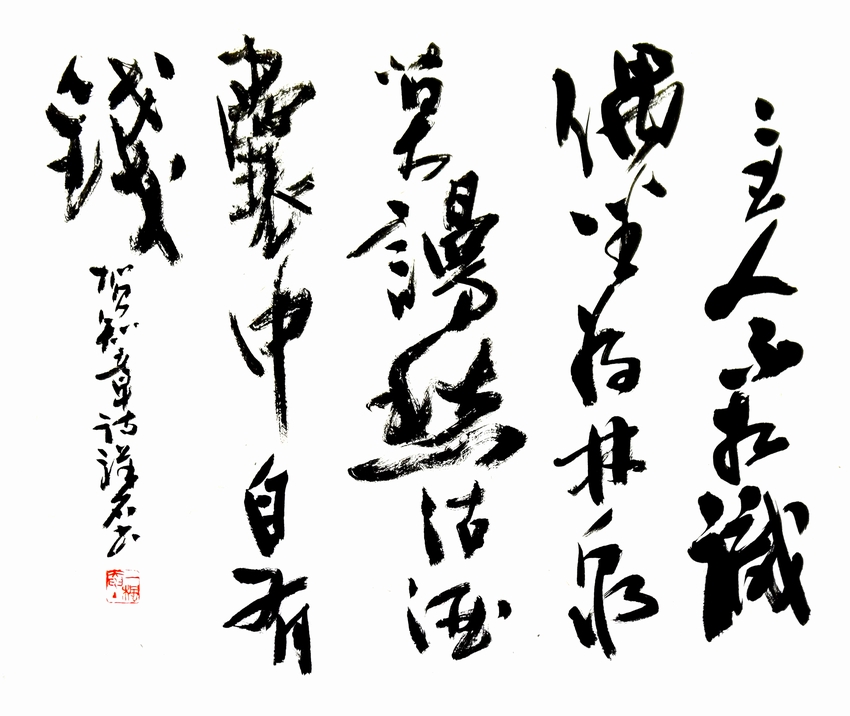 主人不相識
偶坐為林泉
莫謾愁沽酒
囊中自有
錢
賀知章詩